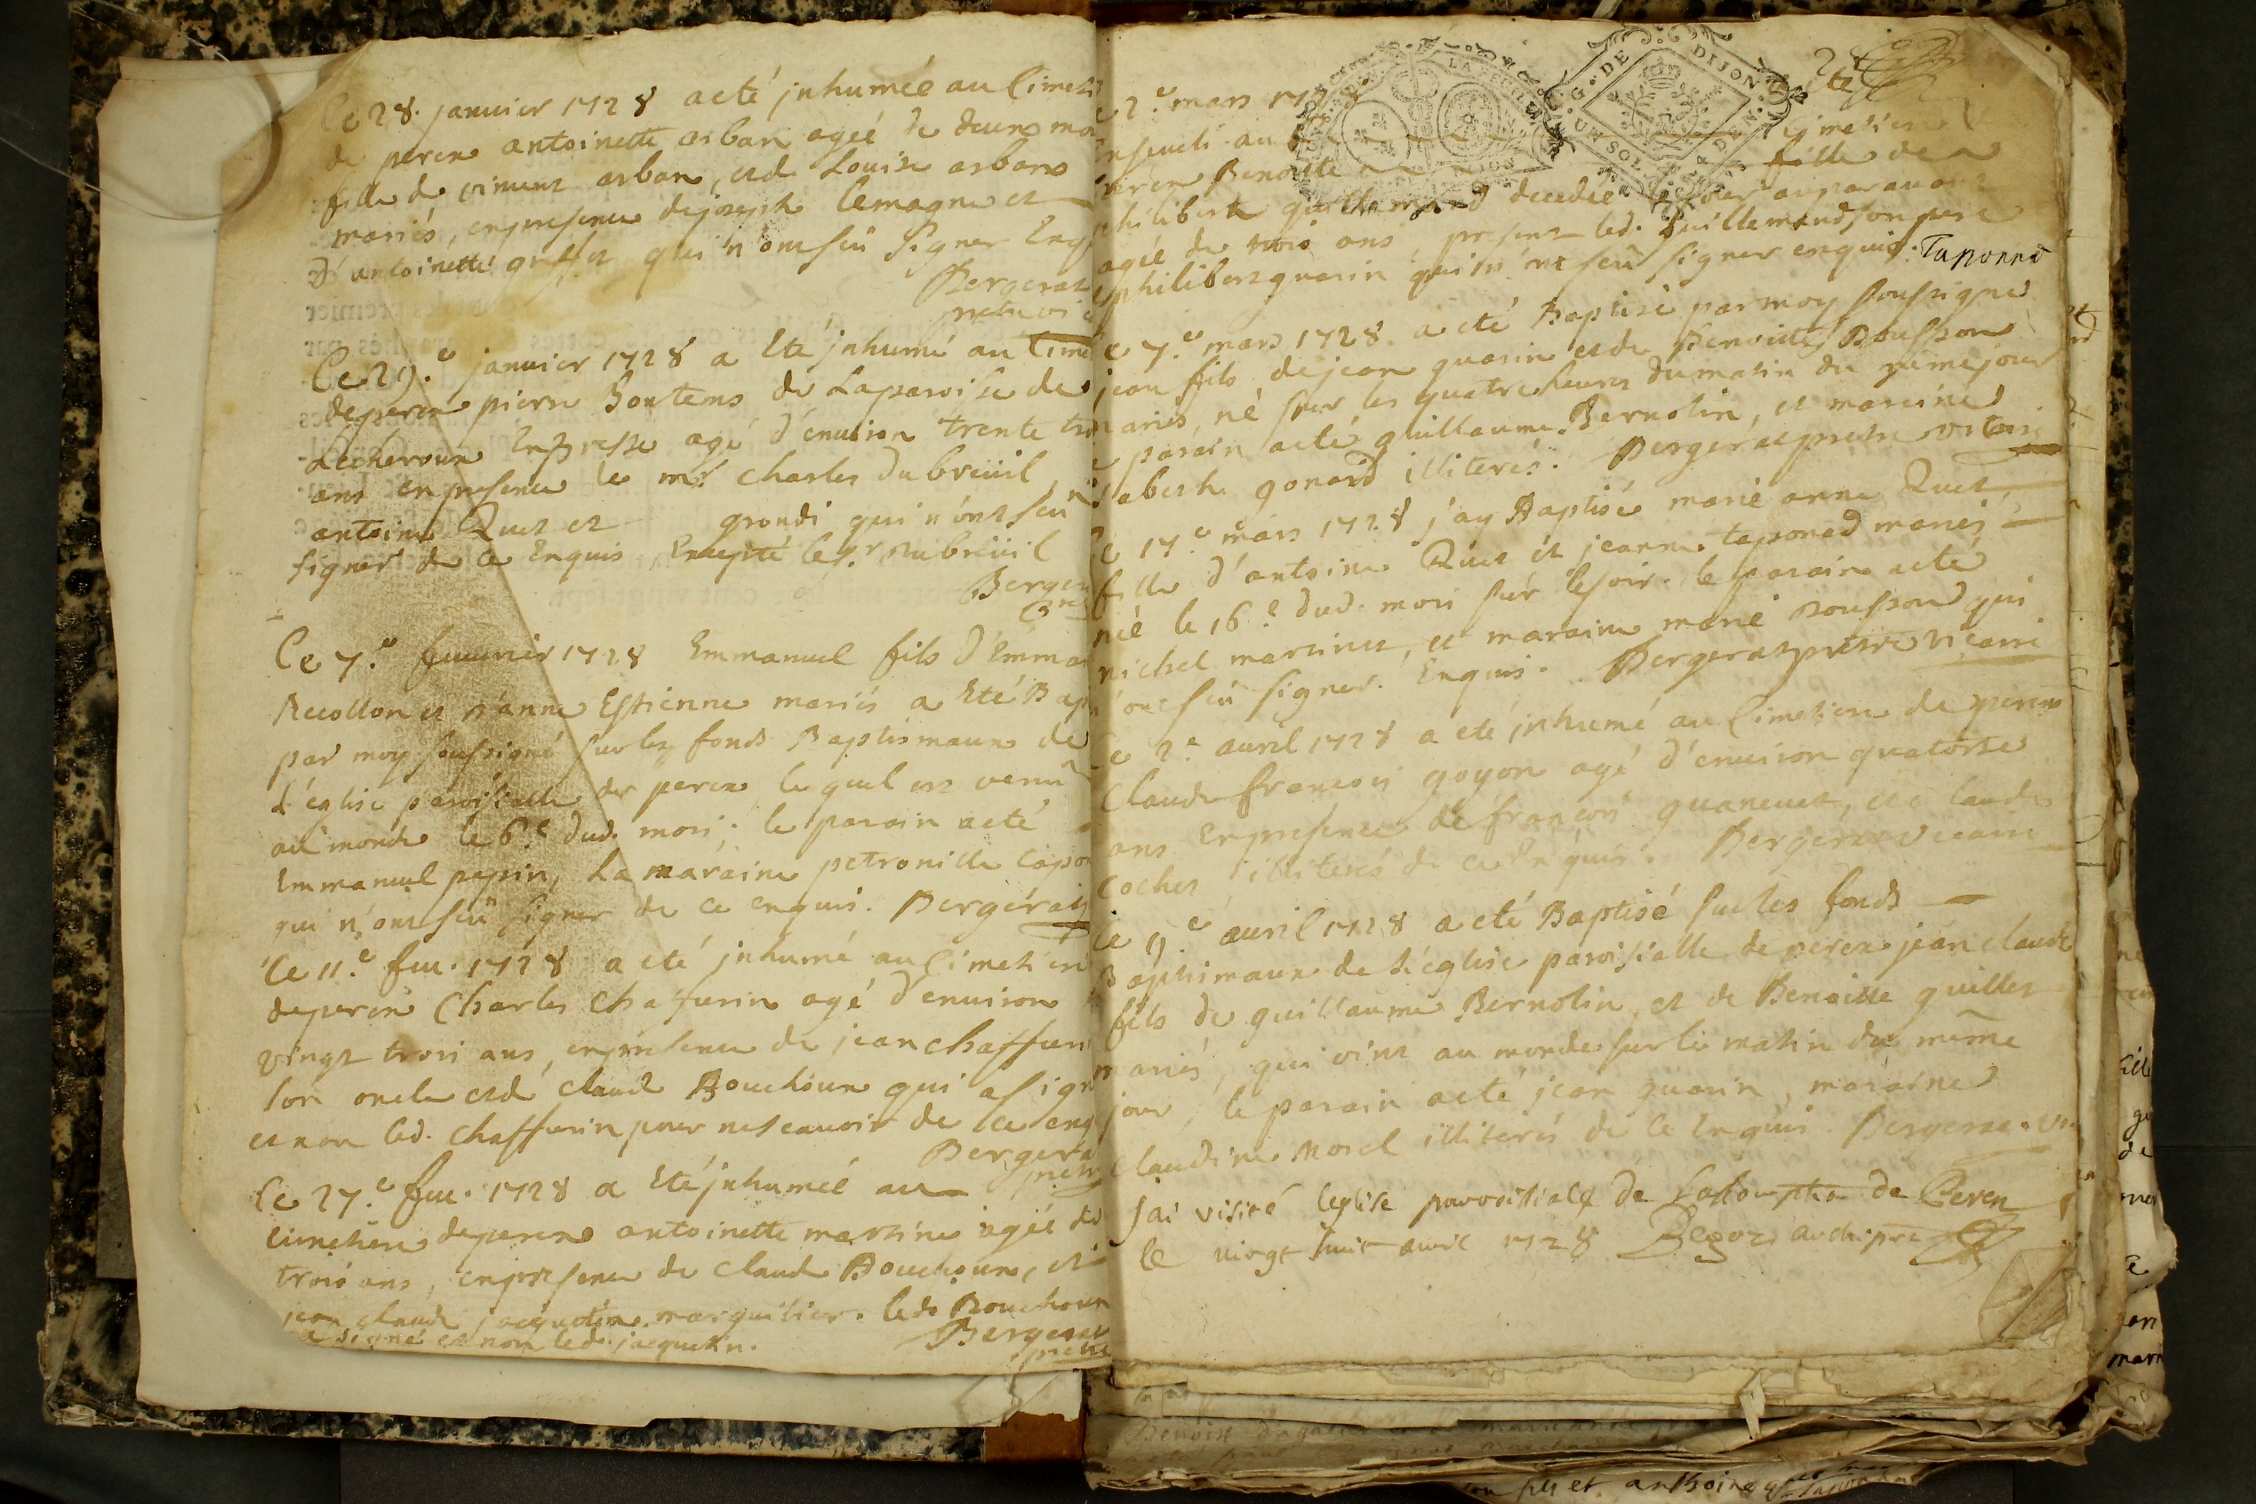 Ce 28. janvier 1728 acté jnhumée au Cimeti
de peren antoinette arban ageé de deux moi
fille de vincent arban, et de Louise arban
mariés, en presence de joseph lemagne et
d'antoinette qui n'ont sçû signer Enq
Bergerat
pretre vi
Ce 29.e janvier 1728 a Eté jnhumé au Cime
de peren pierre Bontems de La paroisse de
En Bresse agé d'environ trente tro
ans en presence de mr. Charles Dubreüil
antoine Quet et grondi qui n'ont sçu
signer de ce Enquis, Excepté le sr. Dubreüil
Berger
Ce 7.e fevurier 1728 Emmanuel fils d'Emma
Recollon et d'anne Estienne mariés a Eté Bap
par moy soussigné sur les fonds Baptismaux de
l'église paroissialle de peren le quel est venu
au monde le 6.e dud. mois. le parain acté
Emmanuel pepin, La maraine petronille tapo
qui n'ont sçû signer de ce enquis. Bergérat
Ce 11.e fev. 1728 a eté jnhumé au Cimetier
de peren Charles Chaffurin agé d'environ
vingt trois ans, en presence de jean chaffurin
son oncle et de claude Bouchoux qui a sign
et non led. chaffurin pour ne scauoir de ce enq
Bergera
pretr
Ce 27.e fev. 1728 a Eté jnhumée au
cimetiere de peren antoinette martine ageé de
trois ans, en presence de claude Bouchoux, et
jean claude jacquetin marguilier. led. Bouchoux
a signé et non led. jacquetin.
Bergerat
pretre
2te
G. DE DIJON
UN SOL 4 DEN.
e 2.e mars 1728
nseueli au Cimetiere
peren Benoitte fille de
philibert guillemand decedée le jour auparauant
ageé de trois ans, present led. Guillemand son pere
philibert guerin qui n'ont sçû signer enquis. Taponnd
e 7.e mars 1728. a eté Baptisé par moy soussigné
jean fils de jean guerin et de Benoitte Bousson
mariés, né sur les quatre heures du matin du même jour
parain acté guillaume Bernolin, et maraine
sabeth gonard illiterés. Bergerat pretre vicaire
e 17.e mars 1728 j'ay Baptisé marie anne Quet,
fille d'antoine Quet et jeanne taponad mariés
neé le 16.e dud. mois sur le soir. le parain acté
michel martinet, et maraine marie Bousson qui
n'ont sçû signer. Enquis. Bergerat pretre vicaire
Ce 2.e auril 1728 a eté jnhumé au Cimetiere de peren
Claude françois goyon agé d'environ quatorse
ans En presence de françois et claude
cochet illiterés de ce Enquis. Bergerat vicaire
Ce 9.e auril 1728 a eté Baptisé sur les fonds
Baptimaux de l'église paroissialle de peren jean claude
fils de guillaume Bernolin, et de Benoitte guillet
mariés, qui vint au monde sur le matin du même
jour, le parain acté jean guerin, maraine
Claudine Morel illiterés de ce Enquis. Bergerat. vic
Jai visité leglise parroissiale de Lassomption de Peren
le vingt huit avril 1728 Begoz archipre